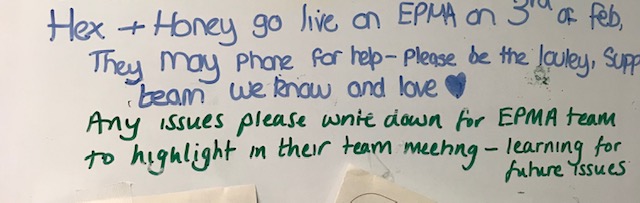 Hex + Honey go live on EPMA on 3rd of feb,
They may phone for help - please be the louley, supp
team we know and love
Any issues please write down for EPMA team
to highlight in their team meeting - learning for
future issues